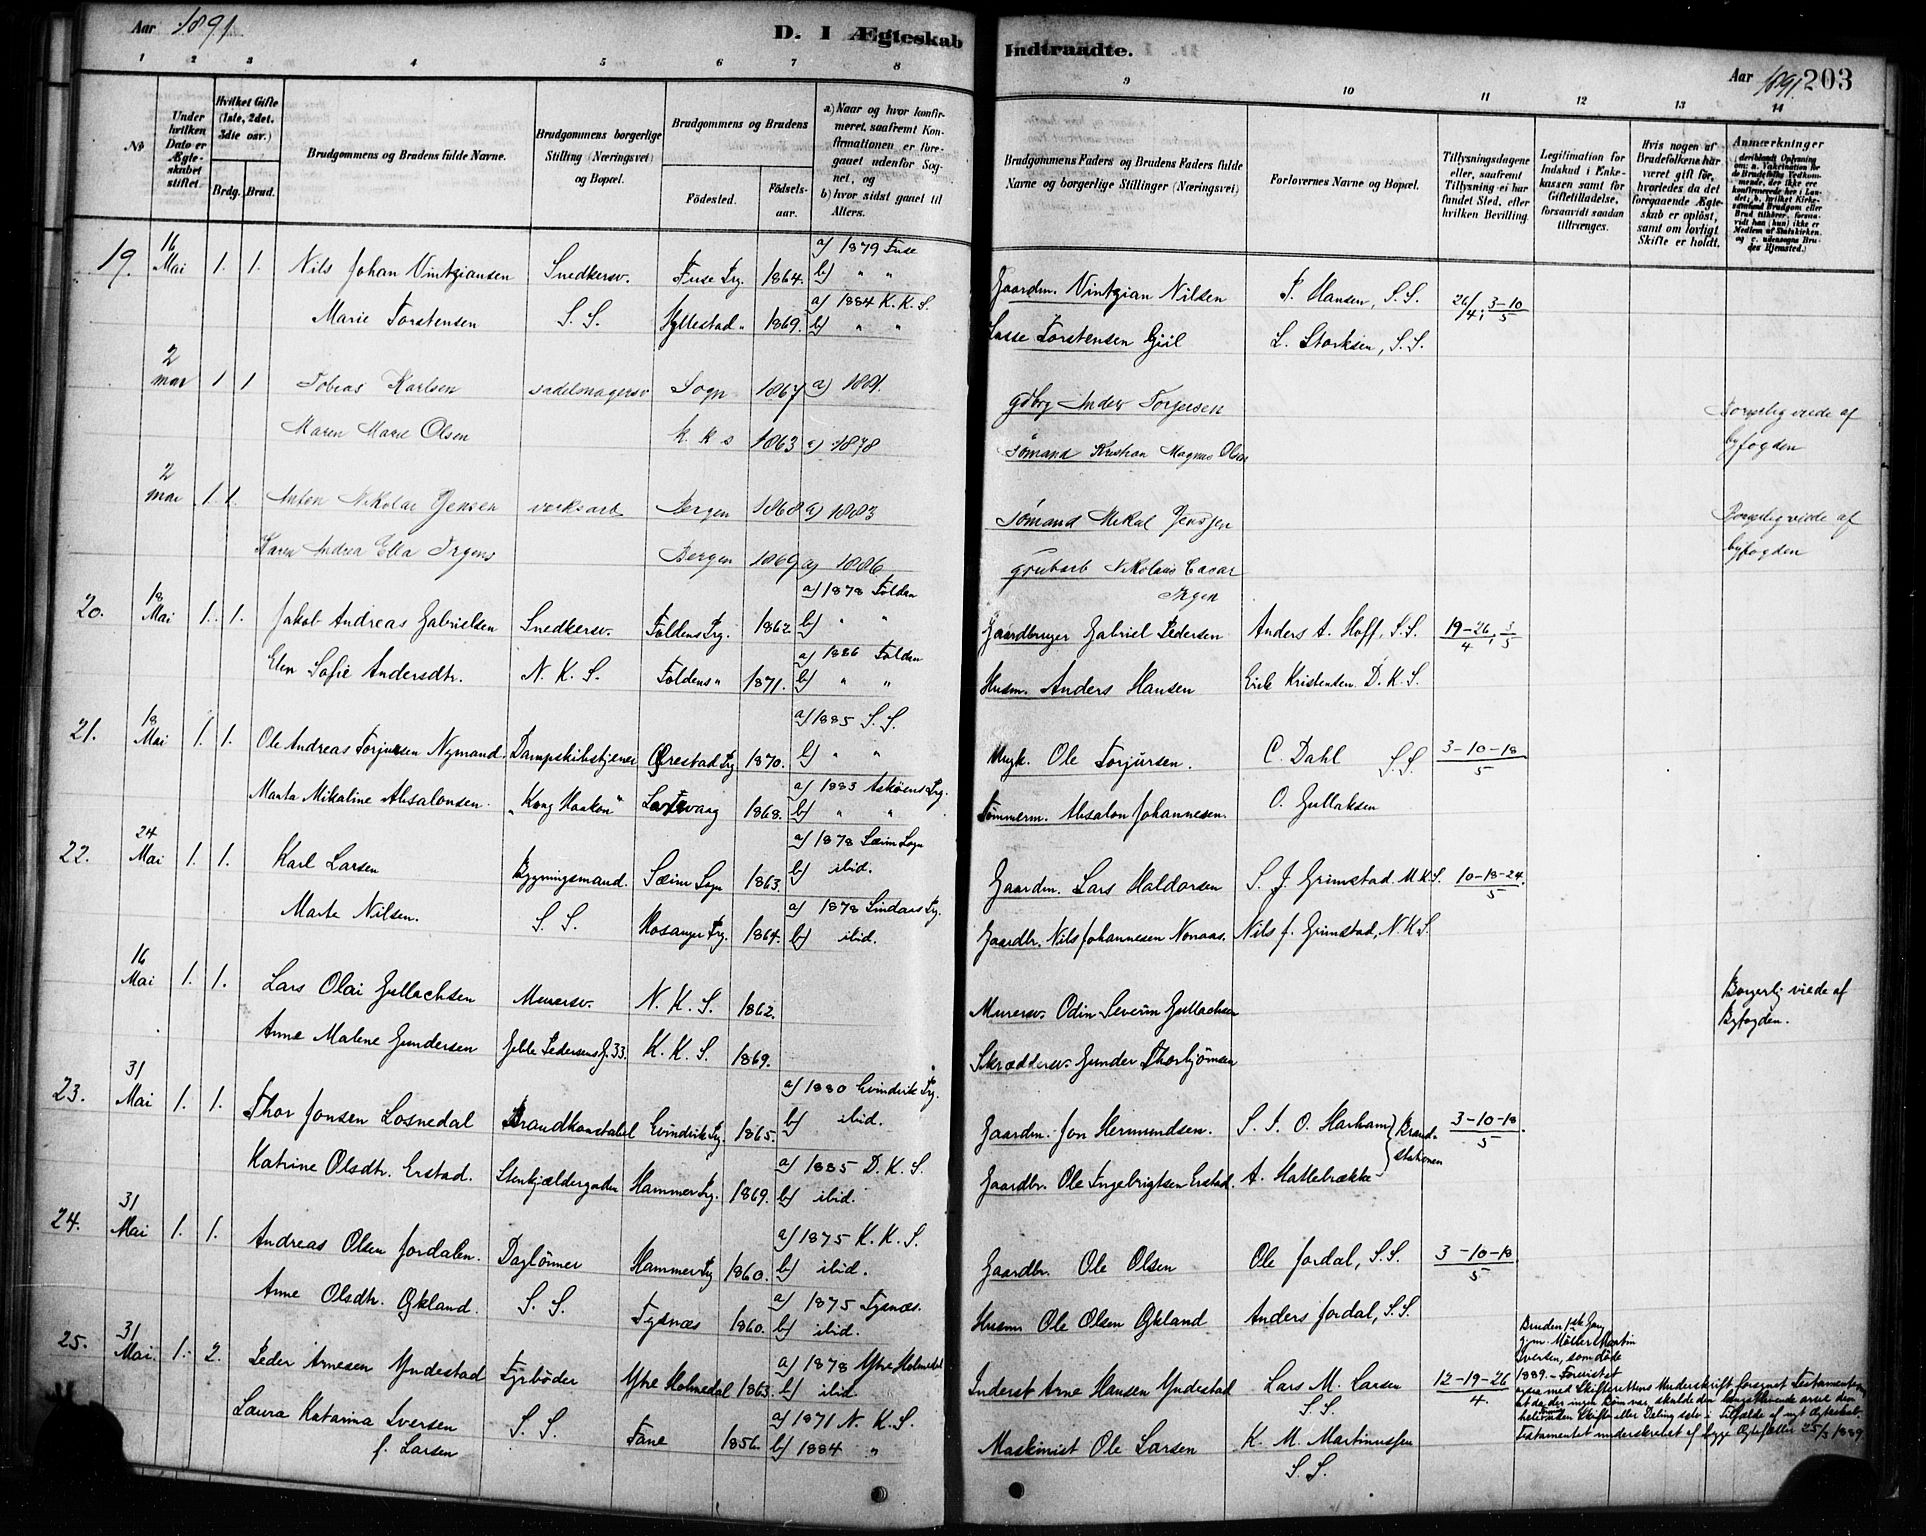 Aar 1891.
D. I Ægteskab Indtraadte.
Aar 1891. 203
1 2 3 4 5 6 7 8 9 10 11 12 13 14
No
Under hvilken Dato er Ægteskabet stiftet.
Hvilket Gifte (1ste, 2det. 3die osv.)
Brdg. Brud.
Brudgommens og Brudens fulde Navne.
Brudgommens borgerlige Stilling (Næringsvei) og Bopæl.
Brudgommens og Brudens
Fødested. Fødselsaar.
a) Naar og hvor konfirmeret, saafremt Konfirmationen er foregaaet udenfor Sognet, og
b) hvor sidst gaaet til Alters.
Brudgommens Faders og Brudens Faders fulde Navne og borgerlige Stillinger (Næringsvei)
Forlovernes Navne og Bopæl.
Tillysningsdagene eller, saafremt Tillysning ei har fundet Sted, efter hvilken Bevilling.
Legitimation for Indskud i Enkekassen samt for Giftetilladelse, forsaavidt saadan tiltrænges.
Hvis nogen af Brudefolkene har været gift før, hvorledes da det foregaaende Ægteskab er opløst, samt om lovligt Skifte er holdt.
Anmærkninger
19. 16 Mai 1. 1. Nils Johan Vintziansen Snedkersv. Fuse Prg. 1864. a) 1879 Fuse b) " " Gaardm. Vintzian Nilsen P. Hansen, S.S. 26/4; 3-10/5
Marie Torstensen S. S. Hyllestad " 1869. a) 1884 K. K. S. b) " " Lasse Torstensen Giil L. Storksen, S.S.
2 mar 1 1 Tobias Karlsen sadelmagersv Sogn 1867 a) 1881. gdbrg Anders Torjersen Borgerlig viede af
Maren Marie Olsen k. k s 1863 a) 1878 sömand Kristian Magnus Olsen byfogden
2 mar 1. 1. Anton Nikolai Jensen verksarb Bergen 1868 a) 1883 sömand Mikal Jensen Borgerlig viede af
Karen Andrea Ella Irgens Bergen 1869 a) 1886 grubarb Nikolaus Casar Irgen byfogden
20. 18 Mai 1. 1. Jakob Andreas Gabrielsen Snedkersv. Foldens Prg. 1862 a) 1878 Folden b) " " Gaardbruger Gabriel Pedersen Anders A. Hoff, S.S. 19-26/4; 3/5
Elen Sofie Andersdtr. N. K. S. Foldens " 1871. a) 1886 Folden b) " " Husm. Anders Hansen Erik Kristensen D. K. S.
21. 18 Mai 1. 1. Ole Andreas Torjusen Nymand. Dampskibstjener Øirestad Prg 1870. a) 1885 S. S. b) " " Mugk. Ole Torjursen. C. Dahl S.S. 3-10-18/5
Marta Mikaline Absalonsen. "Kong Haakon" 1868. a) 1883 Askøens Prg. b) " " Tömmerm. Absalon Johannesen. O. Gullaksen
22. 24 Mai 1. 1. Karl Larsen Bygningsmand. Sæim Sogn 1863. a) 1878 Sæim Sogn b) ibid. Gaardm. Lars Haldorsen S. J. Grimstad N.K.S. 10-18-24./5
Marta Nilsen. S. S. Hosanger Prg. 1864. a) 1878 Lindaas Prg. b) ibid. Gaardbr. Nils Johannesen Nonaas. Nils J. Grimstad, N.K.S.
16 Mai 1. 1. Lars Olai Gullachsen Murersv. N. K. S. 1862. Murersv. Odin Severin Gullachsen Borgerlig viede af
Anne Malene Gundersen Jekle Pedersens G. 33. K. K. S. 1869. Skræddersv. Gunder Thorbjörnsen Byfogden.
23. 31 Mai 1. 1. Thor Jonsen Losnedal Brandkonstabel Evindvik Prg. 1865. a) 1880 Evindvik Prg. b) ibid. Gaardm. Jon Hermundsen. S. S. O. Harham } Brandstationen 3-10-18./5
Katrine Olsdtr. Erstad. Stenkjældergaden Hammer Prg. 1869. a) 1885 D. K. S. b) ibid. Gaardbr. Ole Ingebrigtsen Erstad. A. Hatlebrække
24. 31 Mai 1. 1. Andreas Olsen Jordalen. Daglönner Hammer Prg 1860. a) 1875 K. K. S. b) ibid. Gaardbr. Ole Olsen Ole Jordal, S.S. 3-10-18/5
Anne Olsdtr. Økland. S. S. Tysnæs 1860. a) 1875 Tysnæs. b) ibid. Husm. Ole Olsen Økland Anders Jordal, S.S.
25. 31 Mai. 1. 2. Peder Arnesen Yndestad Fyrböder Ytre Holmedal 1863. a) 1878 Ytre Holmedal b) ibid Inderst Arne Hansen Yndestad Lars M. Larsen S.S. 12-19-26/4.
Laura Katarina Iversen f. Larsen S. S. Fane 1856. a) 1871 N. K. S. b) 1884 " Maskinist Ole Larsen K. M. Martinussen S. S.
Bruden 1ste Gang
gjm. Möller Martin
Iversen, som döde
1889. - Forevist
ogsaa med Skifterettens Underskrift forsynet Testament
at da der ingen Börn var, skulde den Længstlevende arve den
hele uden Skifte eller Deling selv i Tilfælde af nyt Ægteskab.
Testamentet underskrevet af begge Ægtefæller 25/3 1889